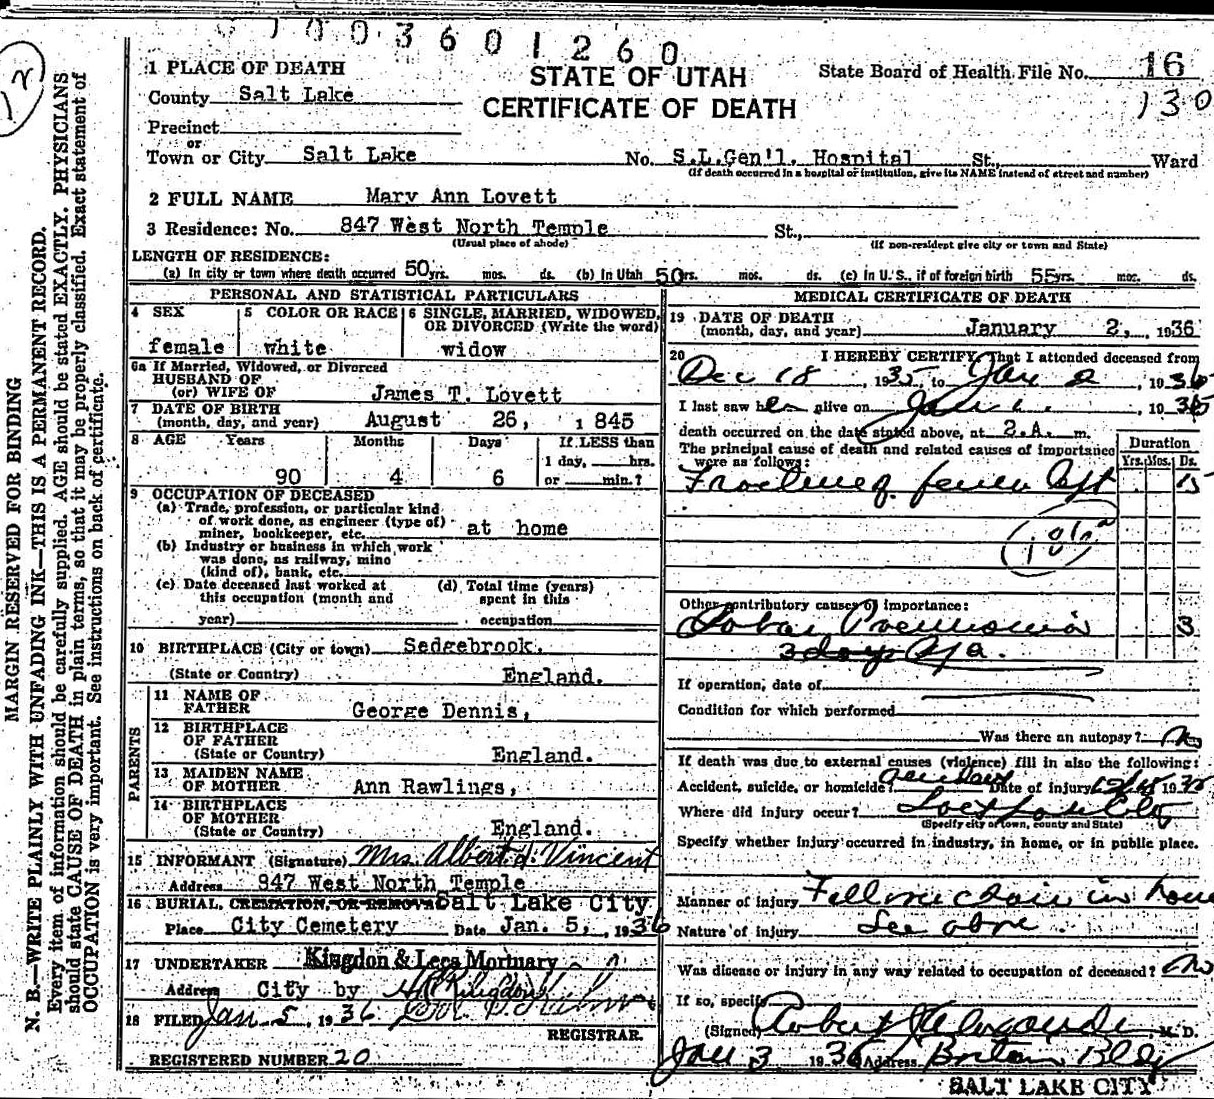 7003601260
12
STATE OF UTAH
CERTIFICATE OF DEATH
State Board of Health File No. 16
130
1 PLACE OF DEATH
County Salt Lake
Precinct
or
Town or City Salt Lake No. S.L.Gen'l. Hospital St., Ward
(If death occurred in a hospital or institution, give its NAME instead of street and number)
2 FULL NAME Mary Ann Lovett
3 Residence: No. 847 West North Temple St.,
(Usual place of abode) (If non-resident give city or town and State)
LENGTH OF RESIDENCE:
(a) In city or town where death occurred 50 yrs. mos. ds. (b) In Utah 50 rs. mos. ds. (c) in U.S., if of foreign birth 55 yrs. mos. ds.
PERSONAL AND STATISTICAL PARTICULARS
4 SEX 5 COLOR OR RACE 6 SINGLE, MARRIED, WIDOWED, OR DIVORCED (Write the word)
female white widow
6a If Married, Widowed, or Divorced
HUSBAND OF
(or) WIFE OF James T. Lovett
7 DATE OF BIRTH
(month, day, and year) August 26, 1845
8 AGE Years Months Days If LESS than
1 day, hrs.
90 4 6 or min.?
9 OCCUPATION OF DECEASED
(a) Trade, profession, or particular kind
of work done, as engineer (type of)
miner, bookkeeper, etc. at home
(b) Industry or business in which work
was done, as railway, mine
(kind of), bank, etc.
(c) Date deceased last worked at
this occupation (month and
year)
(d) Total time (years)
spent in this
occupation
10 BIRTHPLACE (City or town) Sedgebrook.
(State or Country) England.
PARENTS
11 NAME OF
FATHER George Dennis,
12 BIRTHPLACE
OF FATHER
(State or Country) England.
13 MAIDEN NAME
OF MOTHER Ann Rawlings,
14 BIRTHPLACE
OF MOTHER
(State or Country) England.
15 INFORMANT (Signature) Mrs. Albert J. Vincent
Address 847 West North Temple
16 BURIAL, CREMATION, OR REMOVAL Salt Lake City
Place City Cemetery Date Jan. 5, 1936
17 UNDERTAKER Kingdon & Lees Mortuary
Address City by
18 FILED Jan 5 1936
REGISTRAR.
REGISTERED NUMBER 20
MEDICAL CERTIFICATE OF DEATH
19 DATE OF DEATH
(month, day, and year) January 2, 1936
20 I HEREBY CERTIFY, That I attended deceased from
Dec 18, 1935, to Jan 2, 1936
I last saw her alive on Jan 1, 1936
death occurred on the date stated above, at 2.A. m.
The principal cause of death and related causes of importance
were as follows:
Duration
Yrs. Mos. Ds.
Fracture of femur left 15
Other contributory causes of importance:
Lobar Pneumonia 3
3 days
If operation, date of
Condition for which performed
Was there an autopsy? No
If death was due to external causes (violence) fill in also the following:
Accident, suicide, or homicide? accident Date of injury 12/18 1935
Where did injury occur?
(Specify city or town, county and State)
Specify whether injury occurred in industry, in home, or in public place.
Manner of injury Fell over chair in home
Nature of injury See above
Was disease or injury in any way related to occupation of deceased? No
If so, specify
(Signed) Robert Alexander M. D.
Jan 3 1936 Address Boston Bldg
SALT LAKE CITY
MARGIN RESERVED FOR BINDING
N. B.—WRITE PLAINLY WITH UNFADING INK—THIS IS A PERMANENT RECORD.
Every item of information should be carefully supplied. AGE should be stated EXACTLY. PHYSICIANS
should state CAUSE OF DEATH in plain terms, so that it may be properly classified. Exact statement of
OCCUPATION is very important. See instructions on back of certificate.